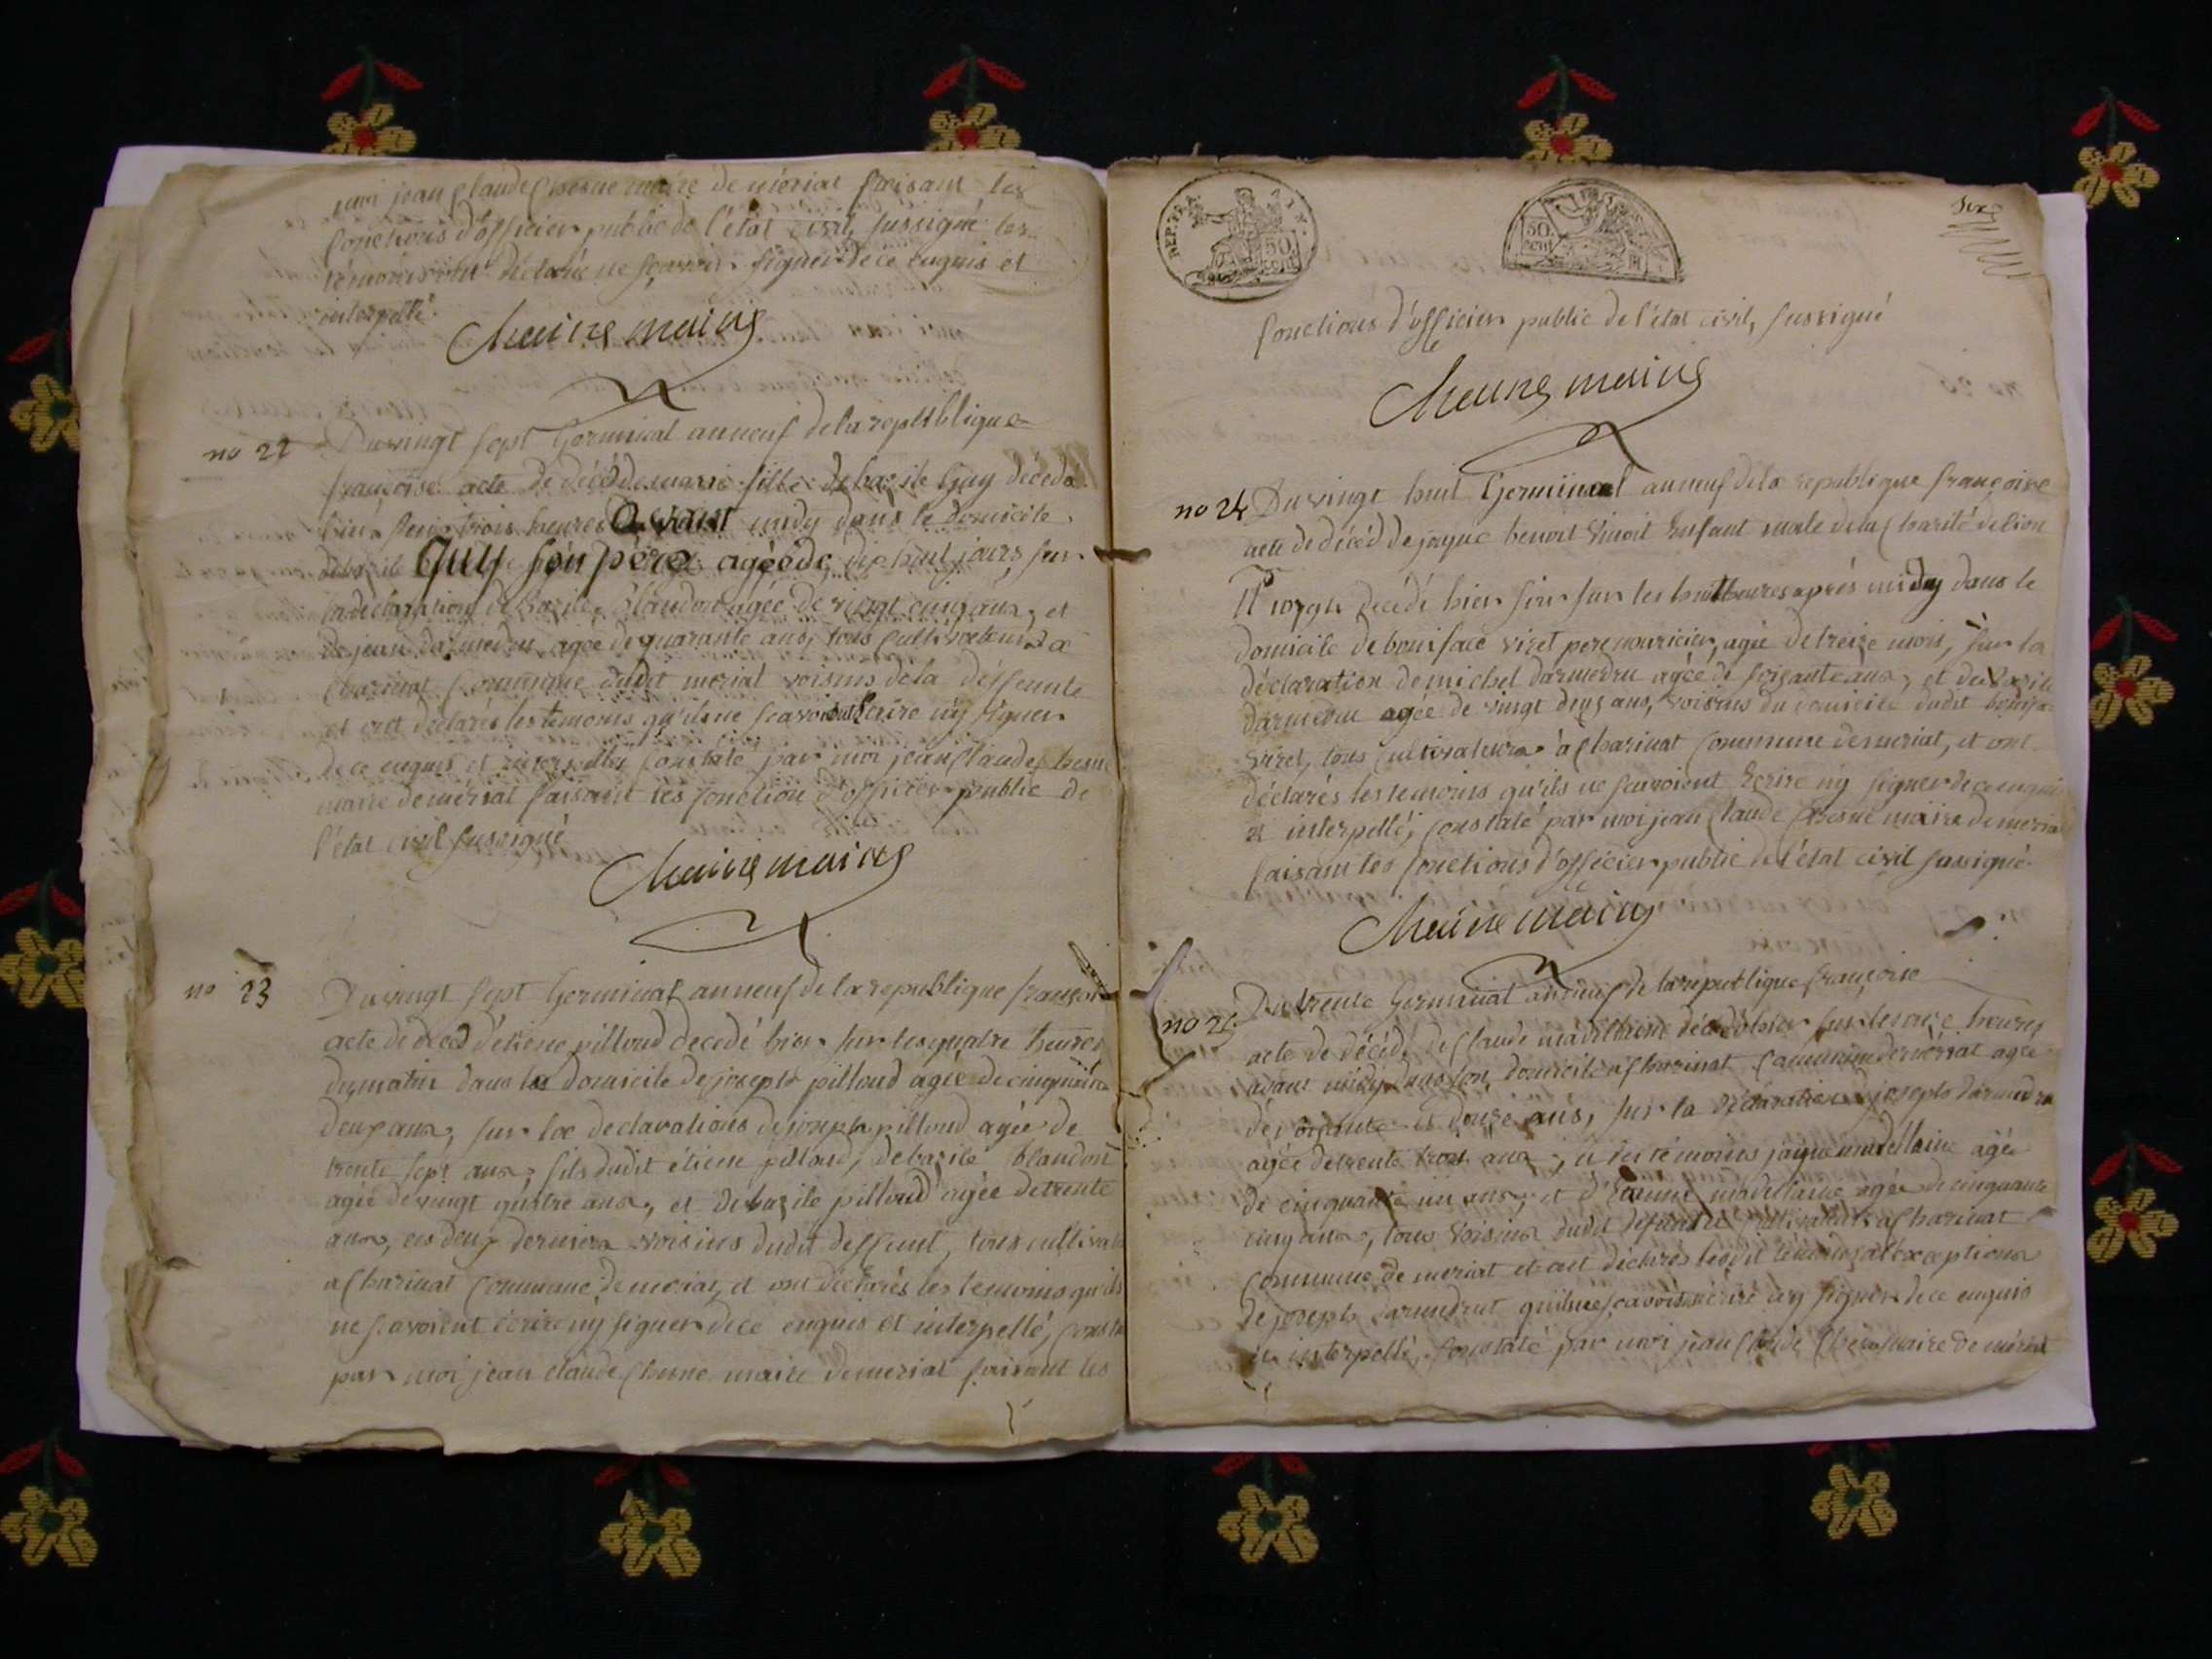 moi jean Claude Chesne maire de meriat faisant les
fonctions d'officier public de l'état civil, sussigné les
témoins ont déclaré ne scavoir signer de ce enquis et
interpellé.
Chesne maire
no 22 Du vingt sept Germinal an neuf de la republique
françoise acte de décéd de marie fille de bazile Guy décédé
hier trois heures avant midy dans le Domicile
de bazile Guy son père agée de dix huit jours, sur
la déclaration de bazile blandon agée de vingt cinq ans, et
de jean darmedru agée de quarante ans, tous cultivateurs a
Charinat Commune dudit meriat voisins de la deffunte
et ont déclarés les temoins qu'ils ne scavoient Ecrire ny signer
de ce enquis et interpellés constaté par moi jean Claude Chesne
maire de meriat faisant les fonction d'officier public de
l'état civil sussigné
Chesne maire
no 23 Du vingt sept Germinal an neuf de la republique françoise
acte de déced d'étiene pilloud decedé hier sur les quatre heures
du matin dans le domicile de joseph pilloud agée de cinquante
deux ans, sur la declarations de joseph pilloud agée de
trente sept ans, fils dudit étiene pilloud, de bazile blandon
agée de vingt quatre ans, et de bazile pilloud agée de trente
ans, ces deux derniers voisins dudit deffunt, tous cultivat
a Charinat Commune de meriat, et ont déclarés les temoins qu'ils
ne scavoient écrire ny signer de ce enquis et interpellé, const
par moi jean claude Chesne maire de meriat faisant les
REP. FRA. 50. cent
50. cent
Six
fonctions d'officier public de l'état civil, sussigné
Chesne maire
no 24 Du vingt huit Germinal an neuf de la republique françoise
acte de décéd de jaque benoit Enfant male de la Charité de lion
décédé hier soir sur les huit heures après midy dans le
domicile de boniface viret pere nouricier, agée de treize mois, sur la
déclaration de michel darmedru agée de soisante ans, et de bazile
darmedru agée de vingt deux ans, voisins du domicile dudit
viret, tous Cultivateurs a Charinat Commune de meriat, et ont
déclarés les temoins qu'ils ne scavoient Ecrire ny signer de ce enquis
et interpellé, constaté par moi jean Claude Chesne maire de meriat
faisant les fonctions d'officier public de l'état civil sussigné
Chesne maire
no 25 Du trente Germinal an neuf de la republique françoise
acte de décéd de Claude décédé hier sur les onze heures
avant midy dans son domicile a Charinat Commune de meriat agée
de soisante et douze ans, sur la déclaration de joseph darmedru
agée de trente trois ans, et les témoins jaque agée
de cinquante un ans, et d'Etienne agée de cinquante
cinq ans, tous voisins dudit defunt et Cultivateurs a Charinat
Commune de meriat et ont déclarés lesdit témoins a l'exceptions
de joseph darmedrut qu'ils ne scavoient écrire ny signer de ce enquis
et interpellé, Constaté par moi jean Claude Chesne maire de meriat